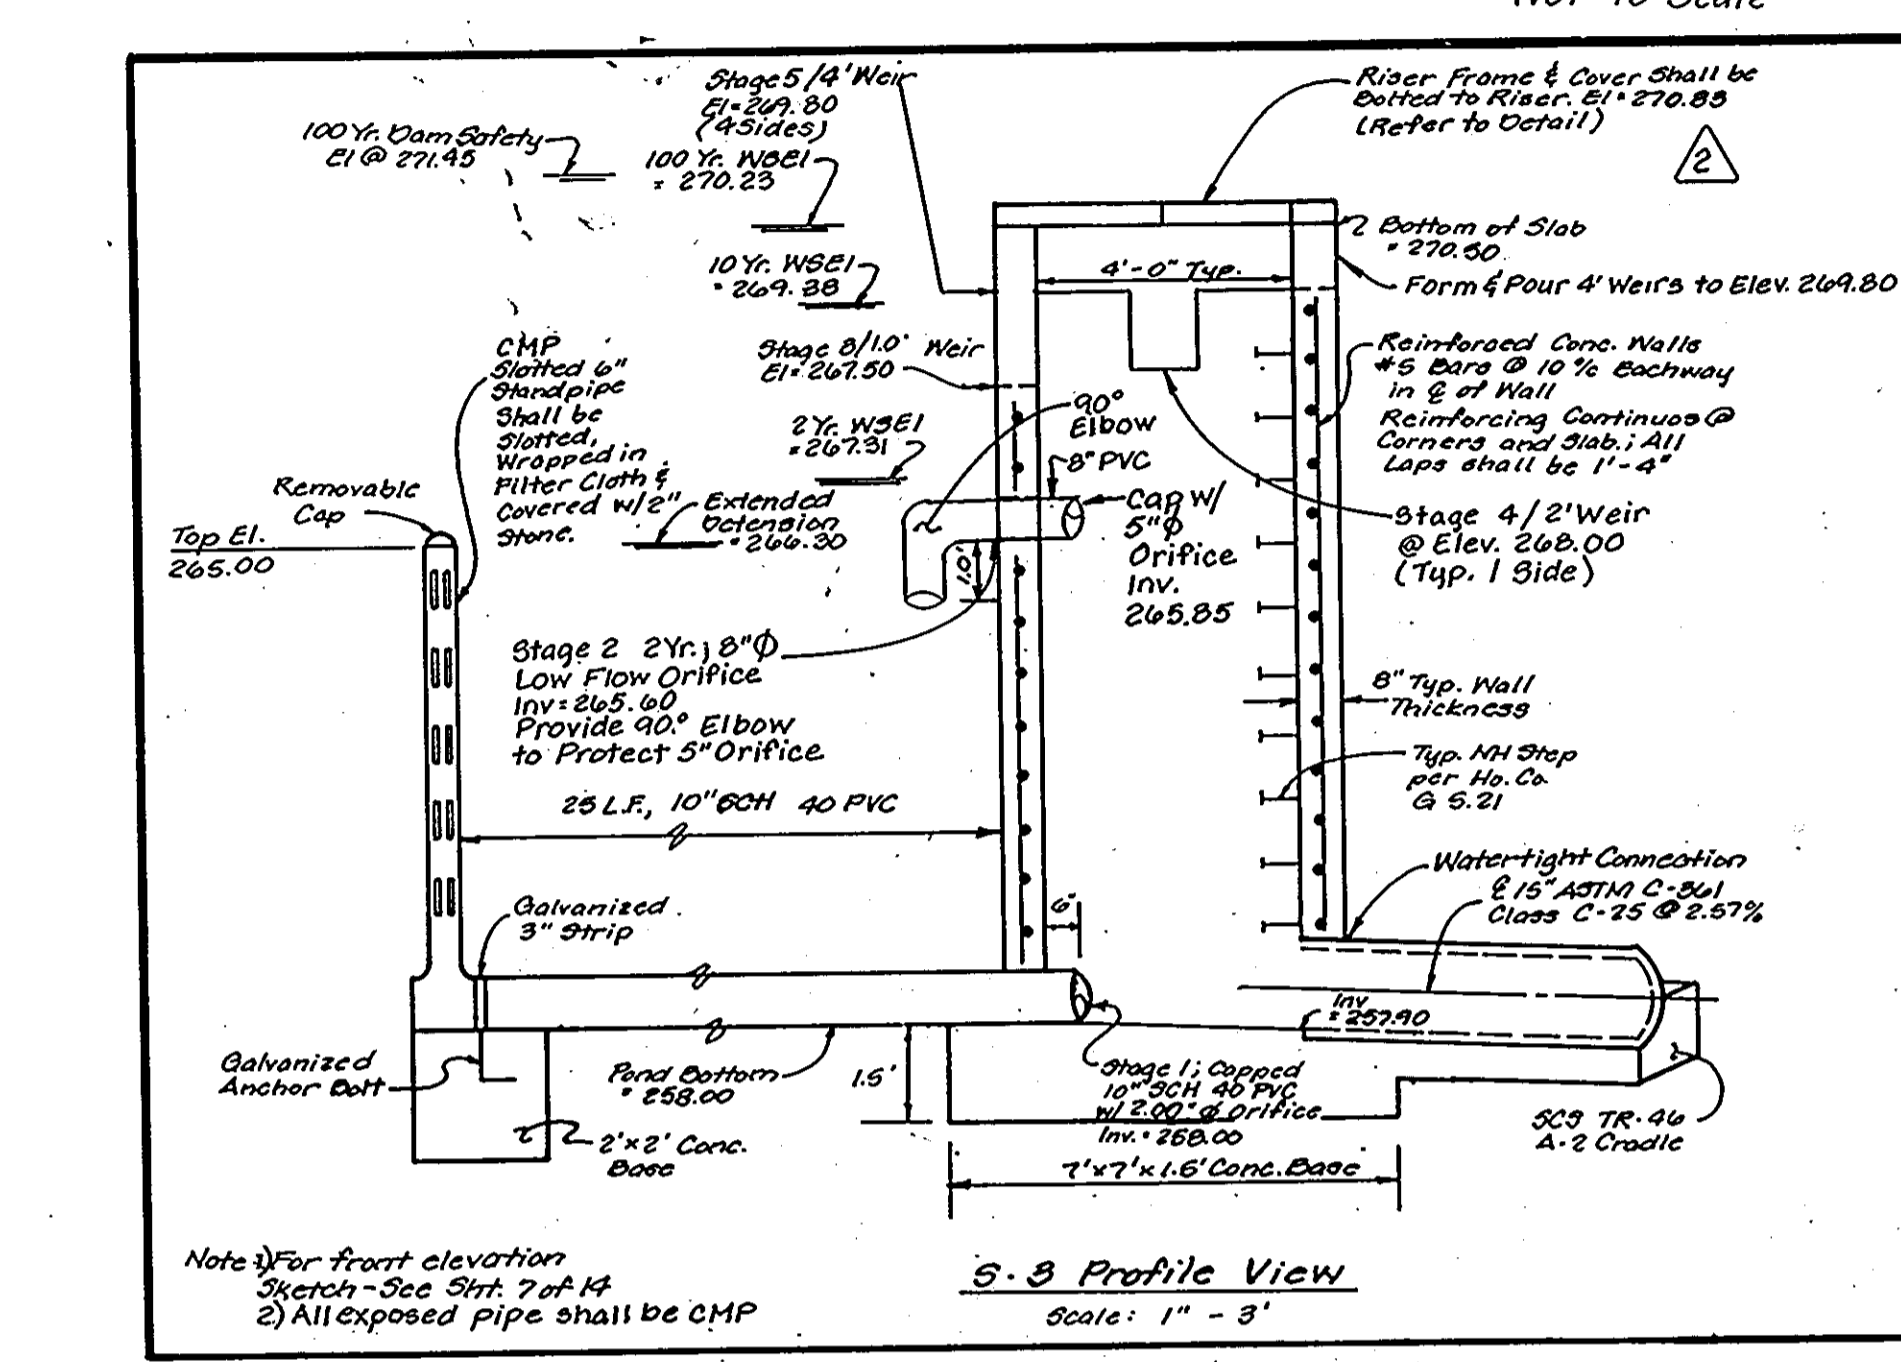 Not to Scale
Stage 5/4' Weir
El=269.80
(4 Sides)
100 Yr. Dam Safety
El @ 271.45
100 Yr. WSEl
= 270.23
10 Yr. WSEl
= 269.38
Riser Frame & Cover Shall be
Bolted to Riser. El = 270.83
(Refer to Detail)
2
Bottom of Slab
= 270.50
4'-0" Typ.
Form & Pour 4' Weirs to Elev. 269.80
CMP
Slotted 6"
Standpipe
Shall be
Slotted,
Wrapped in
Filter Cloth &
Covered w/2"
Stone.
Stage 3/1.0' Weir
El=267.50
2 Yr. WSEl
=267.31
90°
Elbow
8" PVC
Reinforced Conc. Walls
#5 Bars @ 10 % Eachway
in ℄ of Wall
Reinforcing Continuos @
Corners and Slab.; All
Laps shall be 1'-4"
Removable
Cap
Top El.
265.00
Extended
Detension
=266.30
1.0'
Cap w/
5"ϕ
Orifice
Inv.
265.85
Stage 4/2' Weir
@ Elev. 268.00
(Typ. 1 Side)
Stage 2 2Yr.; 8"ϕ
Low Flow Orifice
Inv=265.60
Provide 90° Elbow
to Protect 5" Orifice
8" Typ. Wall
Thickness
Typ. MH Step
per Ho. Co.
G 5.21
25 L.F., 10" SCH 40 PVC
Watertight Connection
℄ 15" ASTM C-361
Class C-25 @ 2.57%
Galvanized
3" Strip
6"
Inv
= 257.90
Galvanized
Anchor Bolt
Pond Bottom
= 258.00
1.5'
Stage 1; Capped
10" SCH 40 PVC
w/ 2.00" ϕ Orifice
Inv. = 258.00
SCS TR-46
A-2 Cradle
2'x2' Conc.
Base
7'x7'x1.5' Conc. Base
Note 1) For front elevation
Sketch - See Sht. 7 of 14
2) All exposed pipe shall be CMP
S-3 Profile View
Scale: 1" - 3'